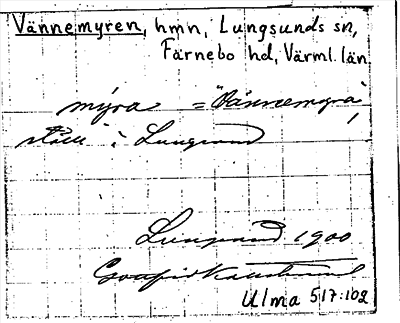 Vännemyren, hmn, Lungsunds sn,
Färnebo hd, Värml. län
myra = "Vännemyra",
i Lungsund
Lungsund 1900
Ulma 517:102